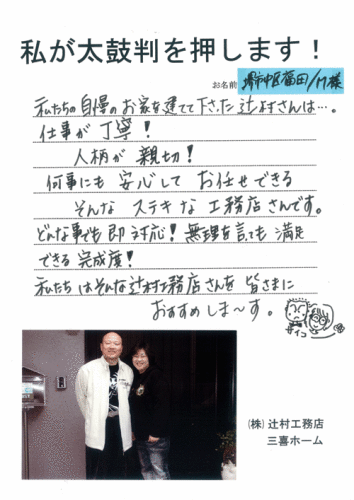 私が太鼓判を押します！
お名前 堺市中区福田/M様
私たちの自慢のお家を建てて下さった辻村さんは…。
仕事が丁寧！
人柄が親切！
何事にも安心してお任せできる
そんなステキな工務店さんです。
どんな事でも即対応！無理を言っても満足
できる完成度！
私たちはそんな辻村工務店さんを皆さまに
おすすめしま〜す。
(株)辻村工務店
三喜ホーム